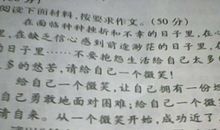 阅读下面材料,按要求作文。(50分)
在面临种种挫折和不幸的日子里,在心
里,在缺乏信心感到前途渺茫的日子里,在
日子里……不要抱怨生活给自己太多
多的愁苦,请给自己一个微笑!
给自己一个微笑,让自己拥有一份
自己勇敢地面对困难;给自己一个微
请自来。从一个微笑开始,成功近了